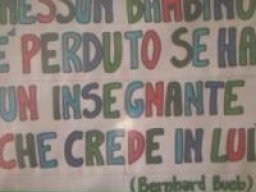 NESSUN BAMBINO
E' PERDUTO SE HA
UN INSEGNANTE
CHE CREDE IN LUI
(Bernhard Bueb)